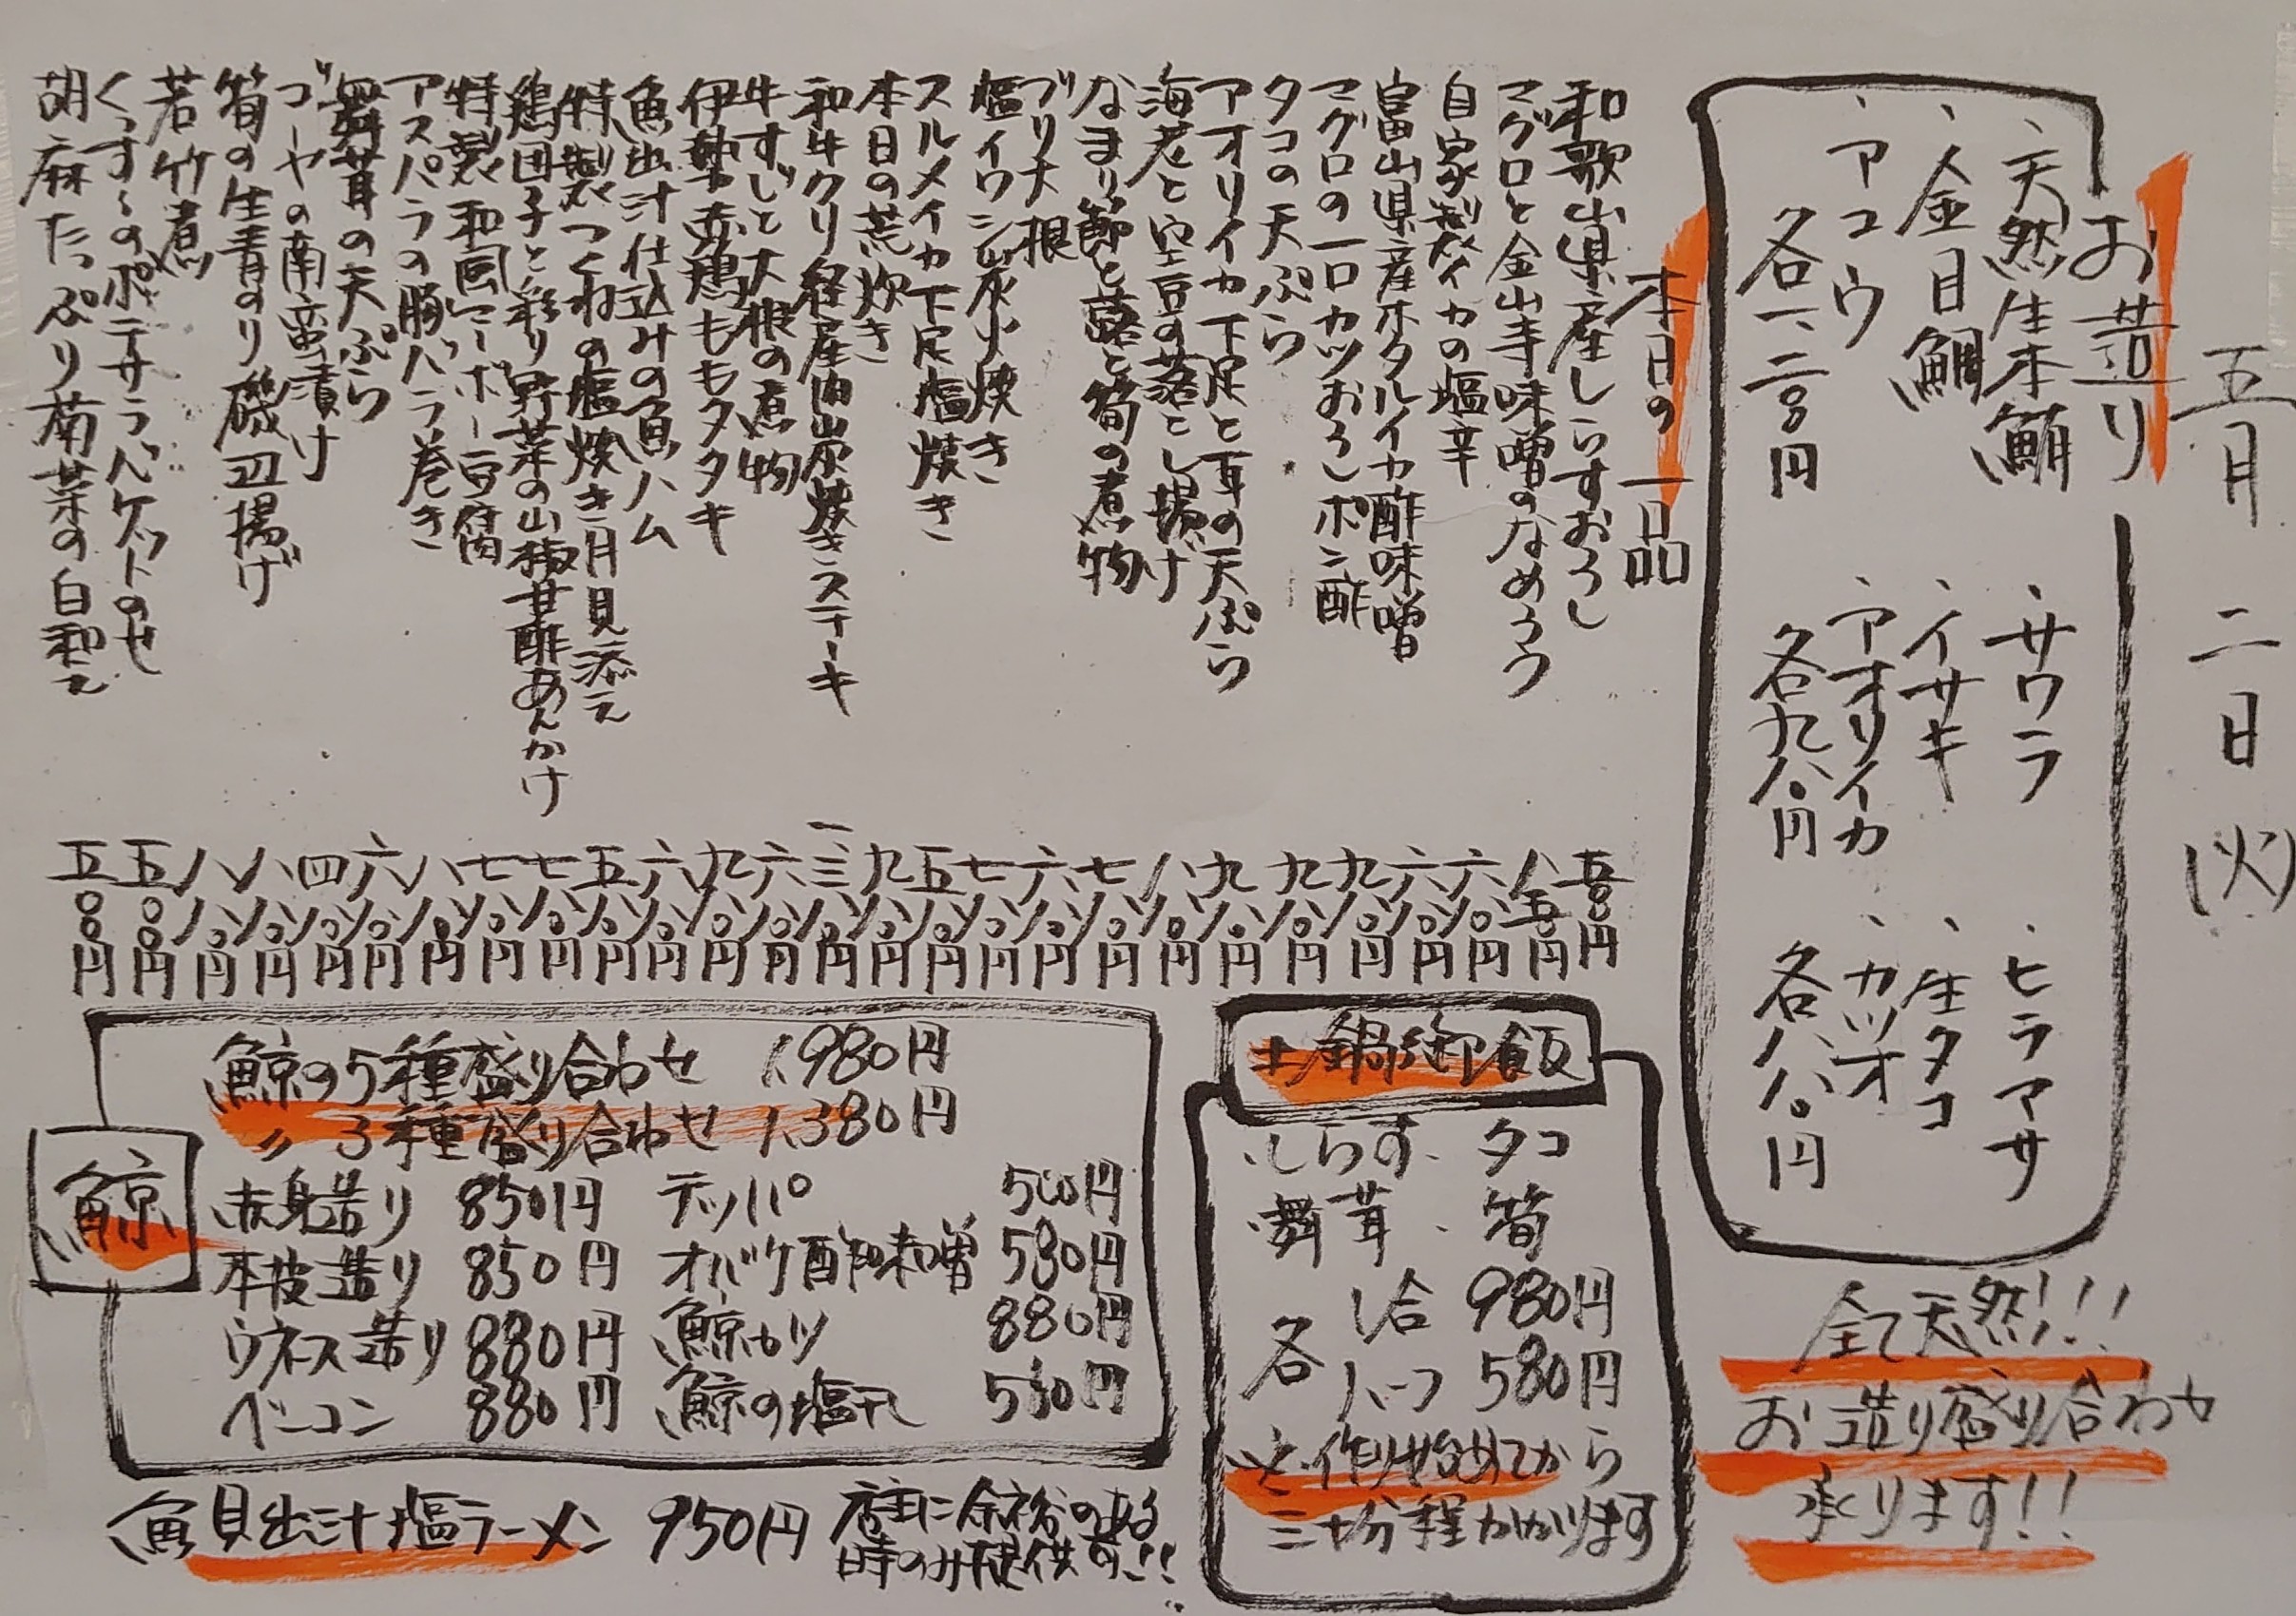 五月二日(火)
お造り
、天然生本鮪
、金目鯛
、アコウ
各一、二八〇円
、サワラ
、イサキ
、アオリイカ
各九八〇円
、ヒラマサ
、生タコ
、カツオ
各八八〇円
全て天然!!!
お造り盛り合わせ
承ります!!
本日の一品
和歌山県産しらすおろし 五〇〇円
マグロと金山寺味噌のなめろう 八五〇円
自家製イカの塩辛 六八〇円
富山県産ホタルイカ酢味噌 六八〇円
マグロの一口カツおろしポン酢 九八〇円
タコの天ぷら 九八〇円
アオリイカ下足と耳の天ぷら 九八〇円
海老と空豆の落とし揚げ 八八〇円
なまり節と蕗と筍の煮物 七八〇円
ブリ大根 六八〇円
塩イワシ炭火焼き 七八〇円
スルメイカ下足塩焼き 五八〇円
本日の荒炊き 九八〇円
和牛クリ経産肉炭焼きステーキ 一、三八〇円
牛すじと大根の煮物 六八〇円
伊勢赤鶏ももタタキ 九八〇円
魚出汁仕込みの魚ハム 六八〇円
特製つくねの塩焼き月見添え 五八〇円
鶏団子と彩り野菜の山椒甘酢あんかけ 七八〇円
特製和風マーボー豆腐 七八〇円
アスパラの豚バラ巻き 八八〇円
舞茸の天ぷら 六八〇円
ゴーヤの南蛮漬け 四八〇円
筍の生青のり磯辺揚げ 八八〇円
若竹煮 八八〇円
くっすんのポテサラバケットのせ 五〇〇円
胡麻たっぷり菊菜の白和え 五〇〇円
土鍋御飯
、しらす、タコ
、舞茸、筍
各 1合 980円
ハーフ 580円
※作り始めてから
三十分程かかります
鯨
鯨の5種盛り合わせ 1,980円
〃 3種盛り合わせ 1,380円
赤身造り 850円 テッパ 500円
本皮造り 850円 オバケ酢味噌 580円
ウネス造り 880円 鯨カツ 880円
ベーコン 880円 鯨の塩干し 580円
魚貝出汁塩ラーメン 950円
店主に余裕のある
時のみ提供可!!